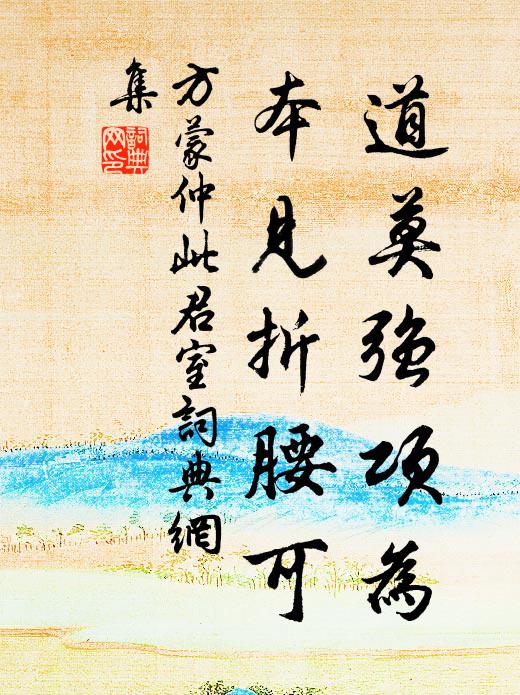 道莫強項為
本見折腰可
方蒙仲此君室詞典網
集
詞典
网印